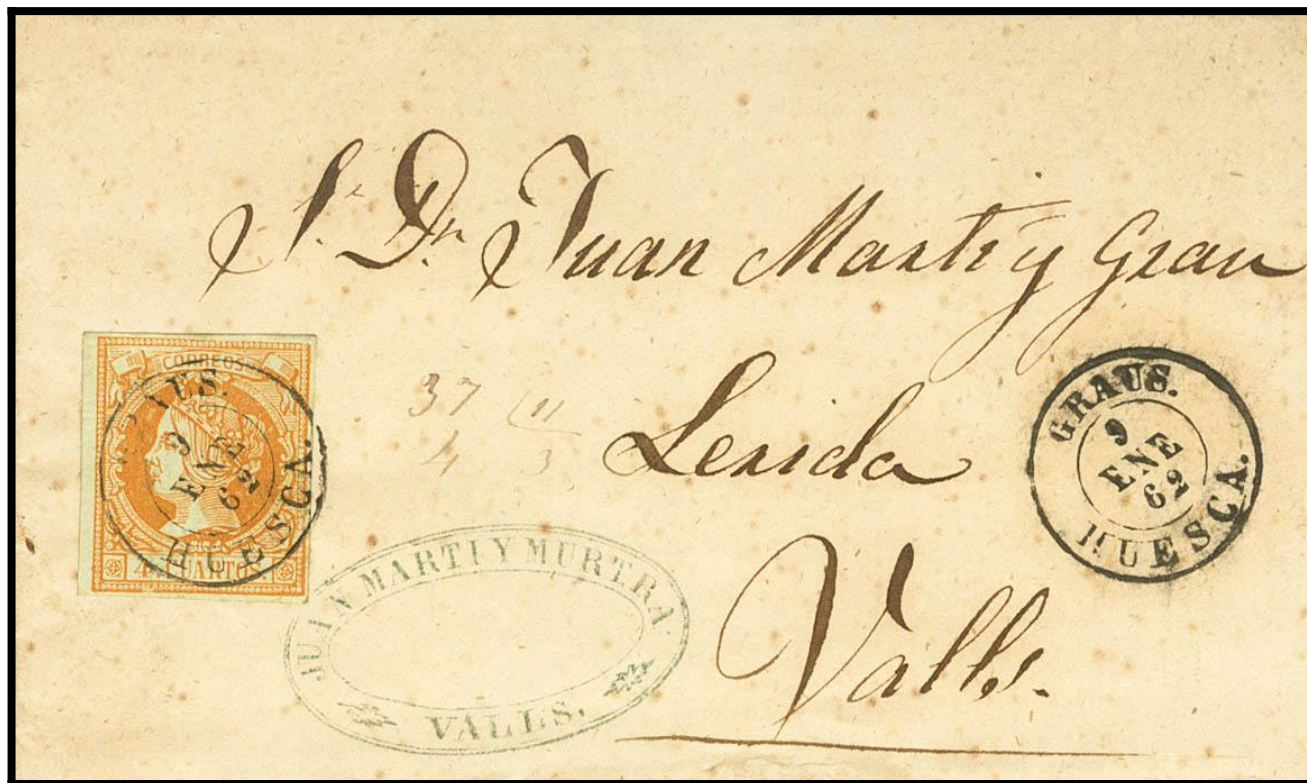 Sr. Dn. Juan Marti y Grau
CORREOS
GRAUS.
9
ENE
62
HUESCA.
4 CUARTOS
37 11
4 3
Lerida
GRAUS.
9
ENE
62
HUESCA.
JUAN MARTI Y MURTRA
VALLS.
Valls.